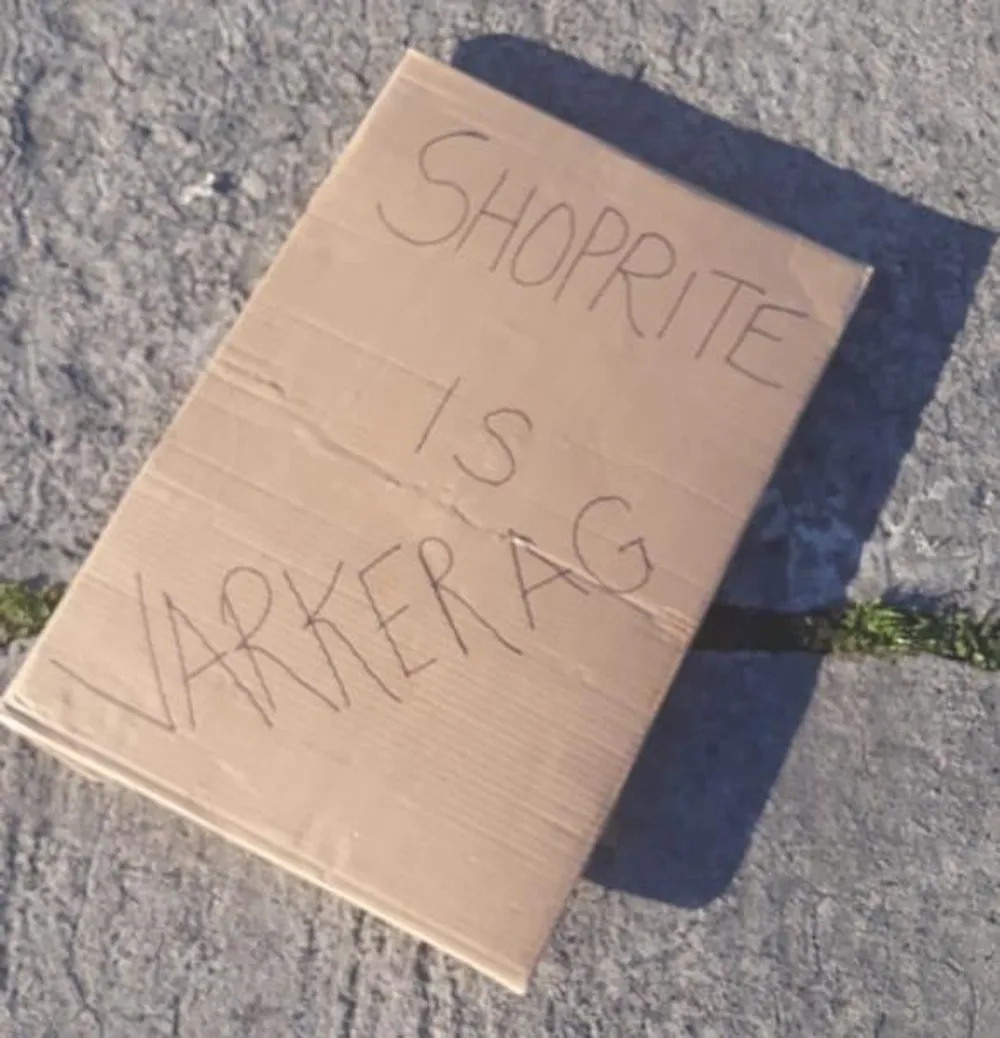 SHOPRITE
IS
VARKERAG